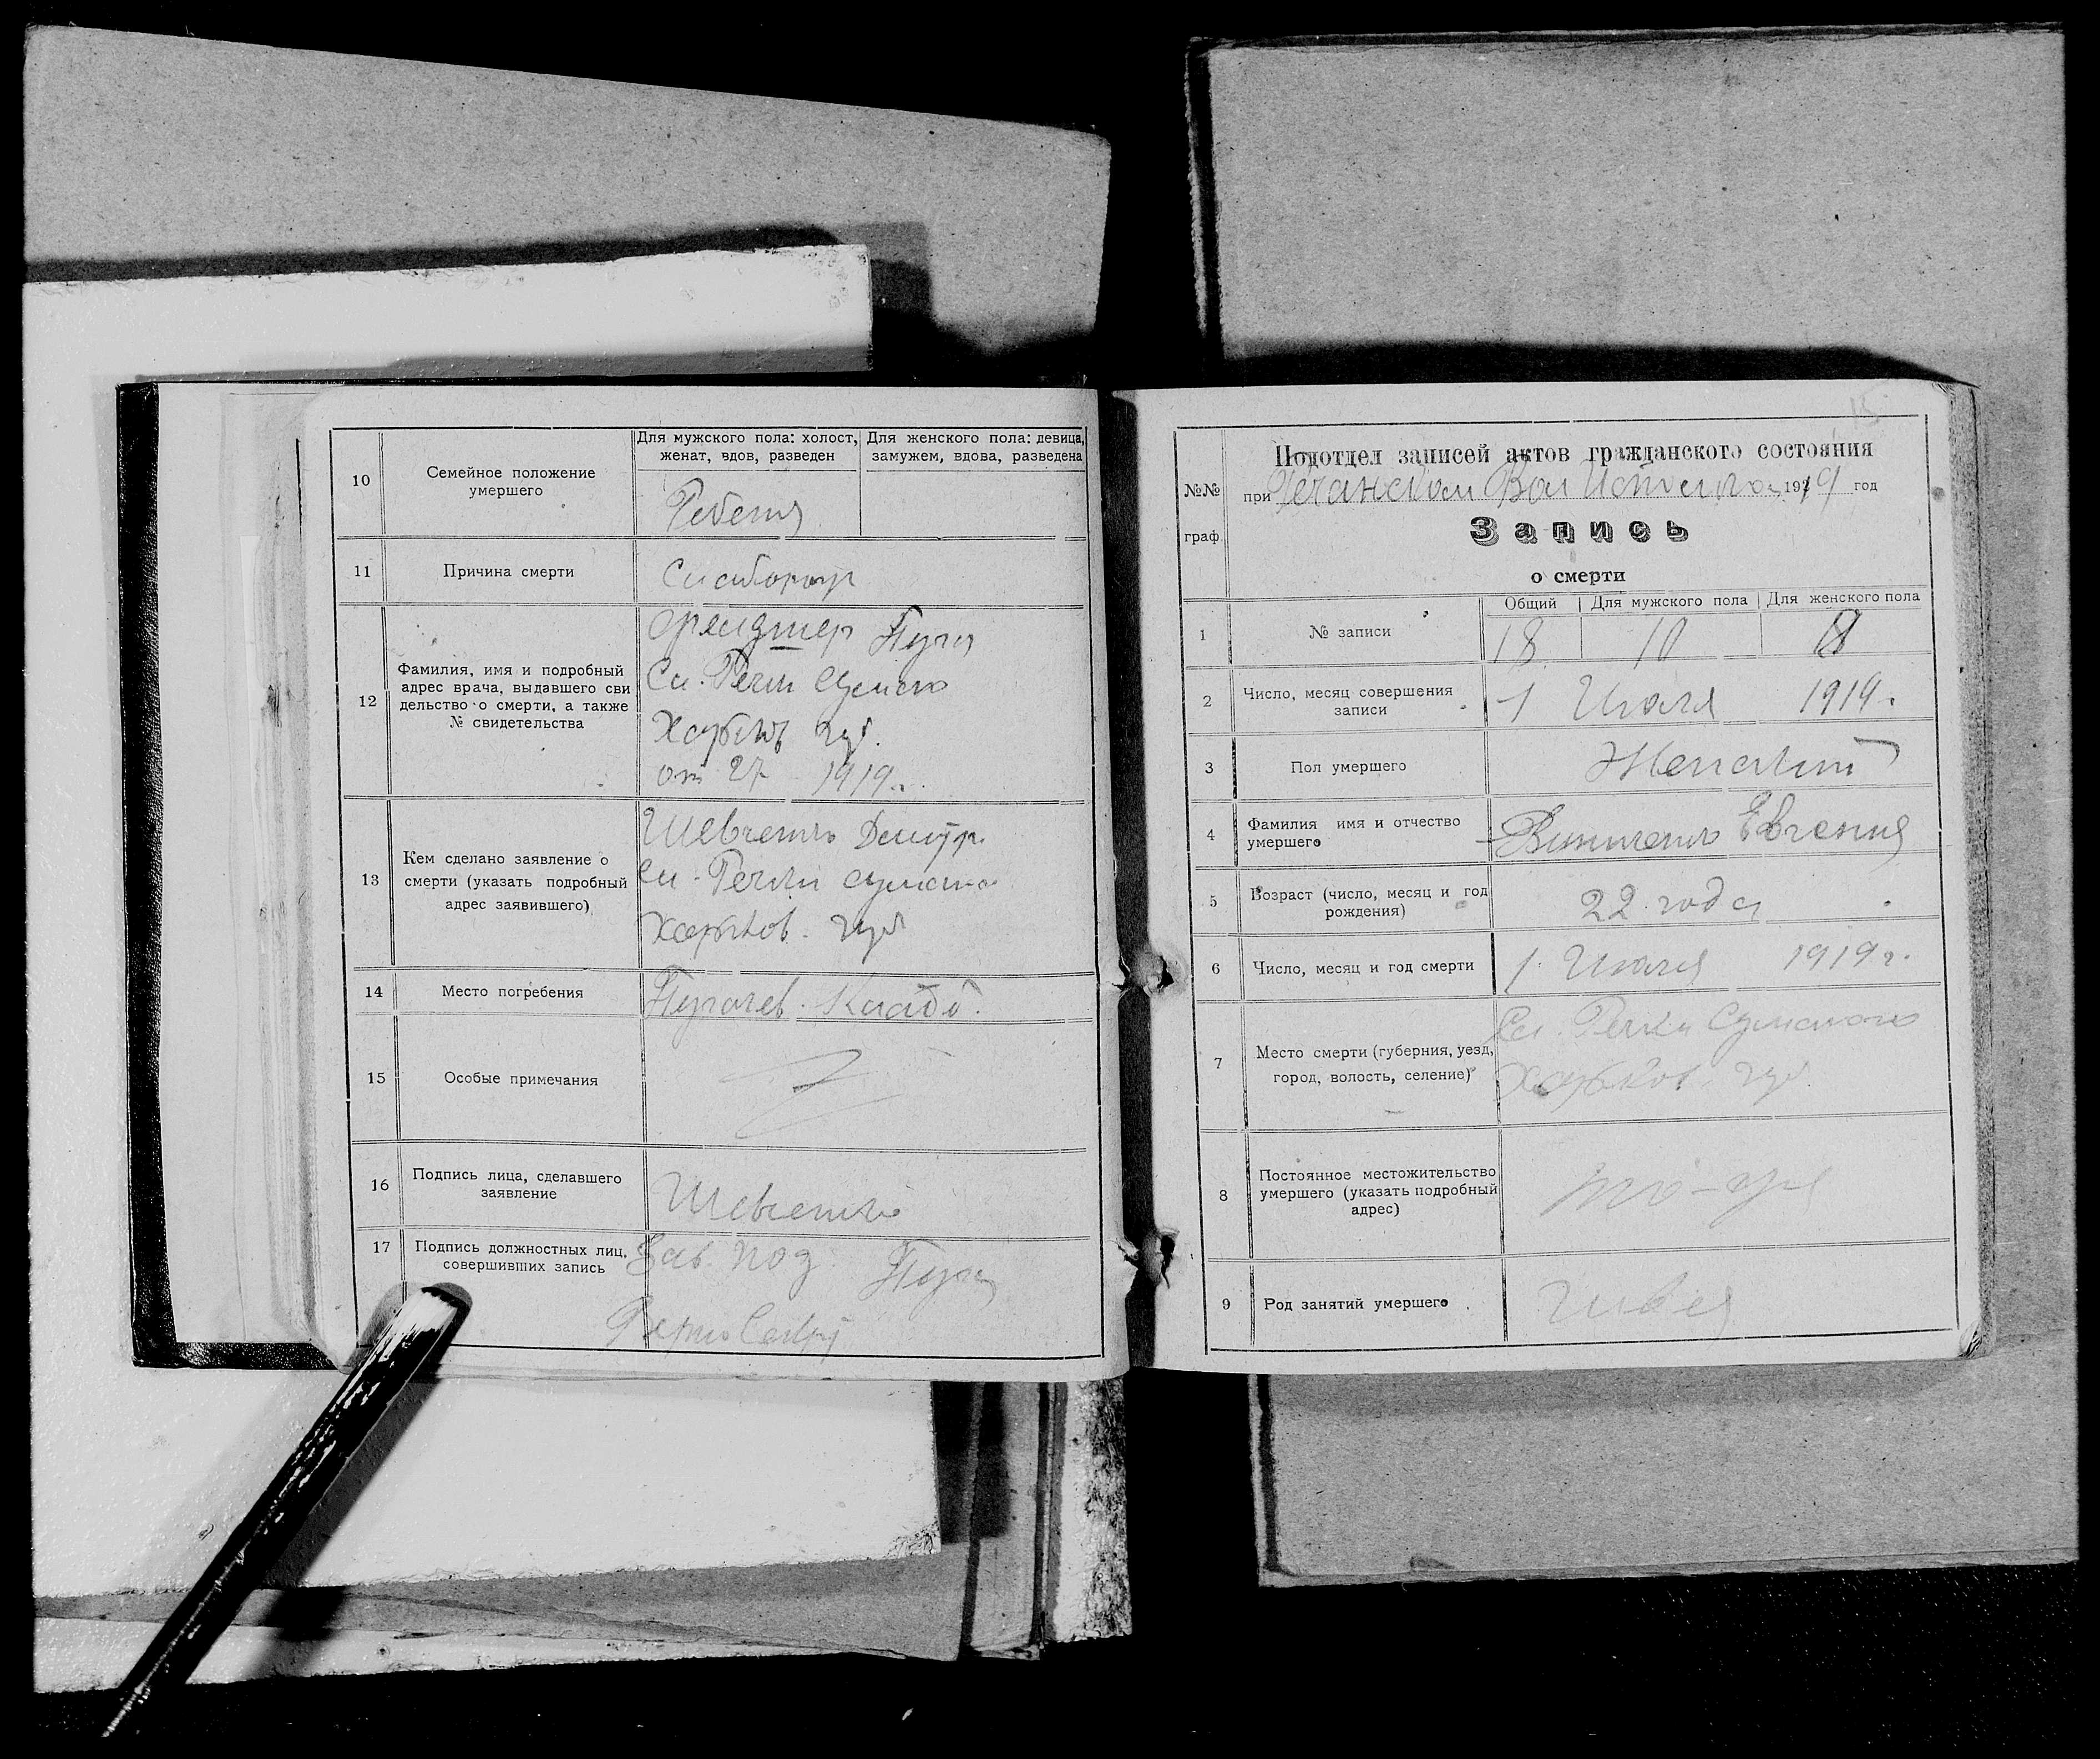 10
Семейное положение
умершего
Для мужского пола: холост,
женат, вдов, разведен
Для женского пола: девица,
замужем, вдова, разведена
11
Причина смерти
12
Фамилия, имя и подробный
адрес врача, выдавшего сви
дельство о смерти, а также
№ свидетельства
Сл. Речки
губ.
от 27 1919 г.
13
Кем сделано заявление о
смерти (указать подробный
адрес заявившего)
Шевченко Дмитр.
Сл. Речки
Харьков. губ
14
Место погребения
15
Особые примечания
16
Подпись лица, сделавшего
заявление
Шевченко
17
Подпись должностных лиц,
совершивших запись
Зав. под.
№№
граф.
Подотдел записей актов гражданского состояния
при Речанском Вол 1919 год
Запись
о смерти
Общий
Для мужского пола
Для женского пола
1
№ записи
18
10
2
Число, месяц совершения
записи
1 Июля 1919 г.
3
Пол умершего
Женский
4
Фамилия имя и отчество
умершего
Виниченко Евгения
5
Возраст (число, месяц и год
рождения)
22 года
6
Число, месяц и год смерти
1 Июля 1919 г.
7
Место смерти (губерния, уезд,
город, волость, селение)
Сл. Речки Сумского
Харьков. губ.
8
Постоянное местожительство
умершего (указать подробный
адрес)
9
Род занятий умершего